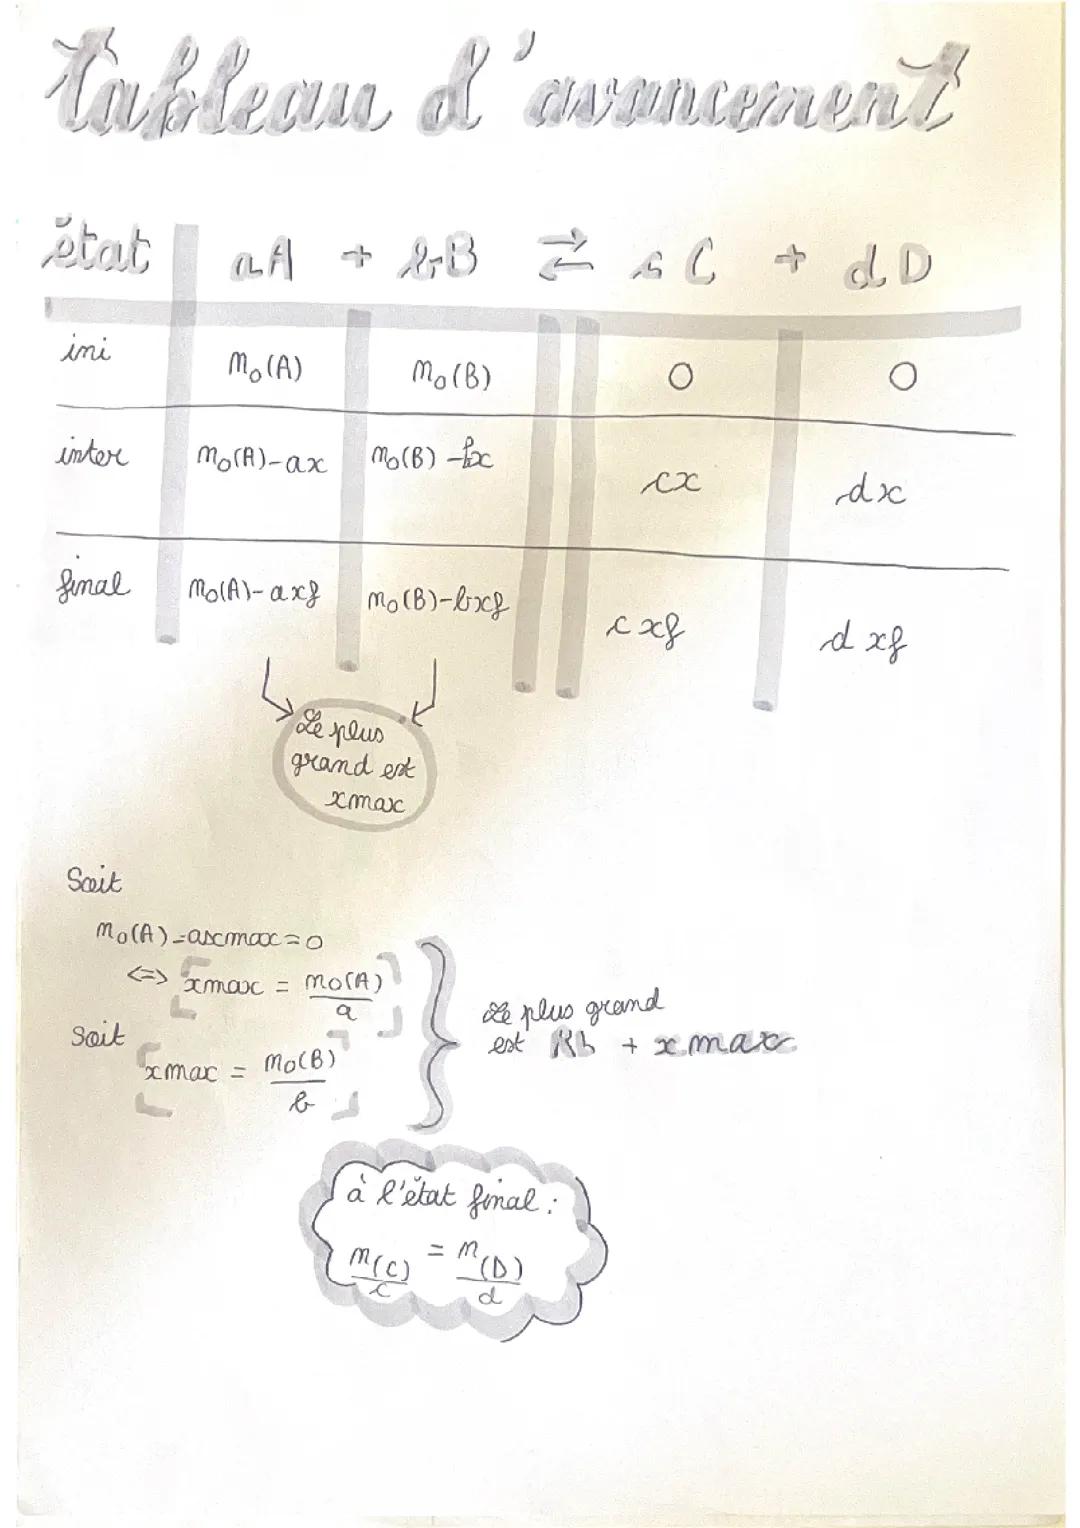 tableau d'avancement
état aA + bB ⇄ cC + dD
ini n₀(A) n₀(B) 0 0
inter n₀(A)-ax n₀(B)-bx cx dx
final n₀(A)-axf n₀(B)-bxf cxf dxf
Le plus
grand est
xmax
Soit
n₀(A)-axmax=0
<=> xmax = n₀(A)/a
Soit
xmax = n₀(B)/b
Le plus grand
est + xmax
à l'état final :
n(C)/c = n(D)/d